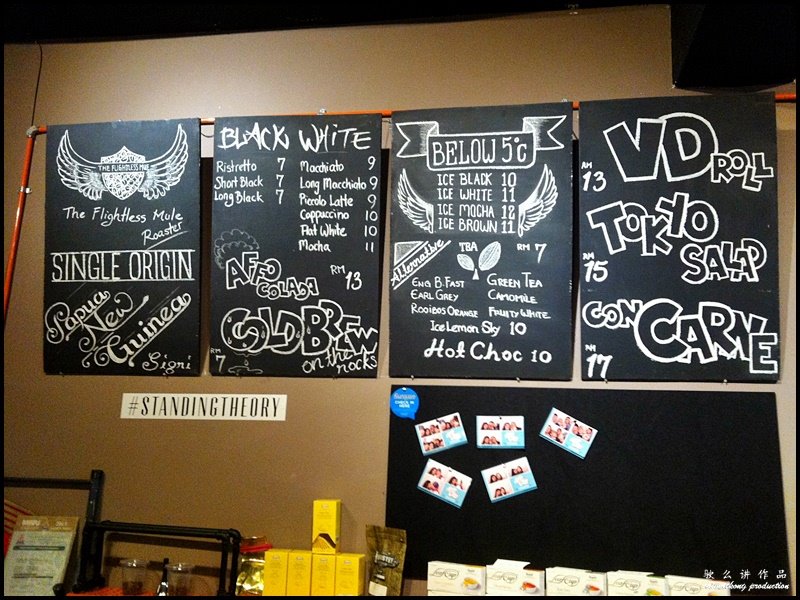 THE FLIGHTLESS MULE
The Flightless Mule
Roaster
SINGLE ORIGIN
Papua
New
Guinea
Sigri
BLACK WHITE
Ristretto 7
Short Black 7
Long Black 7
Macchiato 9
Long Macchiato 9
Piccolo Latte 9
Cappuccino 10
Flat White 10
Mocha 11
AFFO
COLADA
RM 13
COLD BREW
on the rocks
RM 7
BELOW 5°C
ICE BLACK 10
ICE WHITE 11
ICE MOCHA 12
ICE BROWN 11
Alternative
TBA
RM 7
ENG B.FAST
EARL GREY
ROOIBOS ORANGE
GREEN TEA
CAMOMILE
FRUITY WHITE
Ice Lemon Sky 10
Hot Choc 10
VD ROLL
RM 13
TOKYO
SALAP
RM 15
CON CARNE
RM 17
#STANDINGTHEORY
foursquare
CHECK IN
HERE